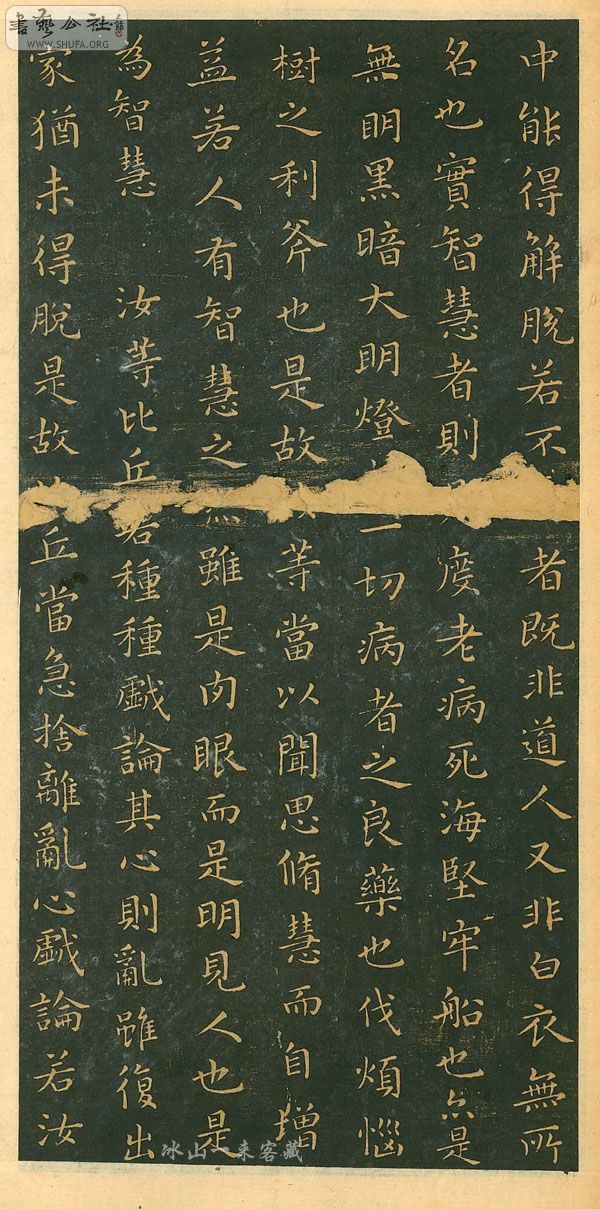 中能得解脫若不者既非道人又非白衣無所
名也實智慧者則度老病死海堅牢船也亦是
無眀黑暗大明燈一切病者之良藥也伐煩惱
樹之利斧也是故等當以聞思脩慧而自增
益若人有智慧之雖是肉眼而是明見人也是
為智慧　汝等比丘若種種戲論其心則亂雖復出
家猶未得脫是故丘當急捨離亂心戲論若汝
書藝公社
WWW.SHUFA.ORG
冰山一来客藏